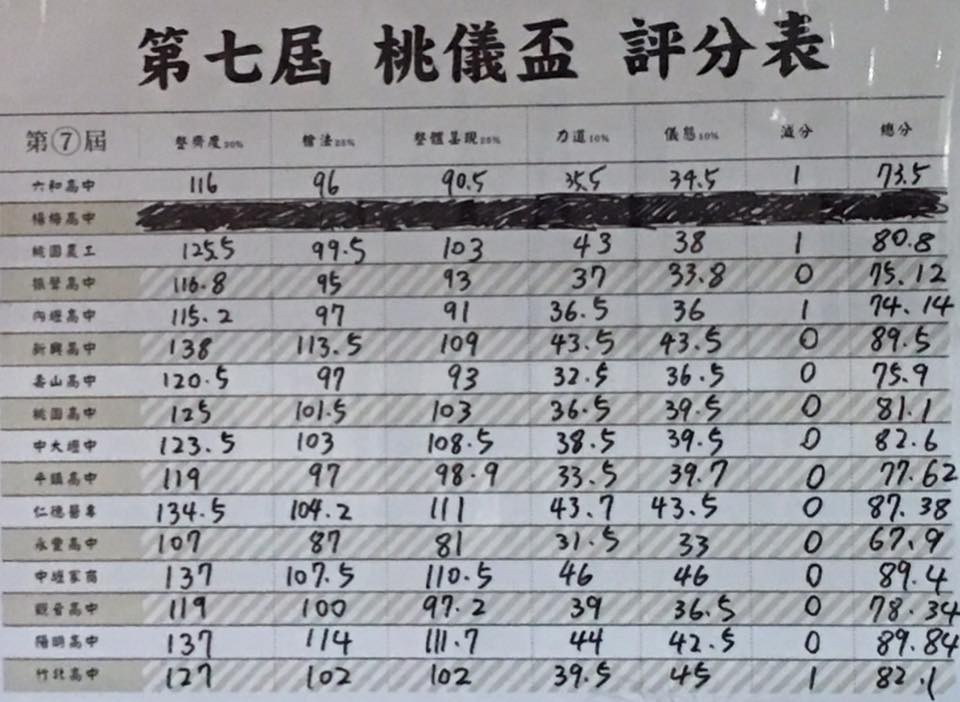 第七屆 桃儀盃 評分表
第⑦屆 整齊度30% 槍法25% 整體呈現25% 力道10% 儀態10% 減分 總分
六和高中 116 96 90.5 35.5 34.5 1 73.5
楊梅高中
桃園農工 125.5 99.5 103 43 38 1 80.8
振聲高中 116.8 95 93 37 33.8 0 75.12
內壢高中 115.2 97 91 36.5 36 1 74.14
新興高中 138 113.5 109 43.5 43.5 0 89.5
壽山高中 120.5 97 93 32.5 36.5 0 75.9
桃園高中 125 101.5 103 36.5 39.5 0 81.1
中大壢中 123.5 103 108.5 38.5 39.5 0 82.6
平鎮高中 119 97 98.9 33.5 39.7 0 77.62
仁德醫專 134.5 104.2 111 43.7 43.5 0 87.38
永豐高中 107 87 81 31.5 33 0 67.9
中壢家商 137 107.5 110.5 46 46 0 89.4
觀音高中 119 100 97.2 39 36.5 0 78.34
陽明高中 137 114 111.7 44 42.5 0 89.84
竹北高中 127 102 102 39.5 45 1 82.1